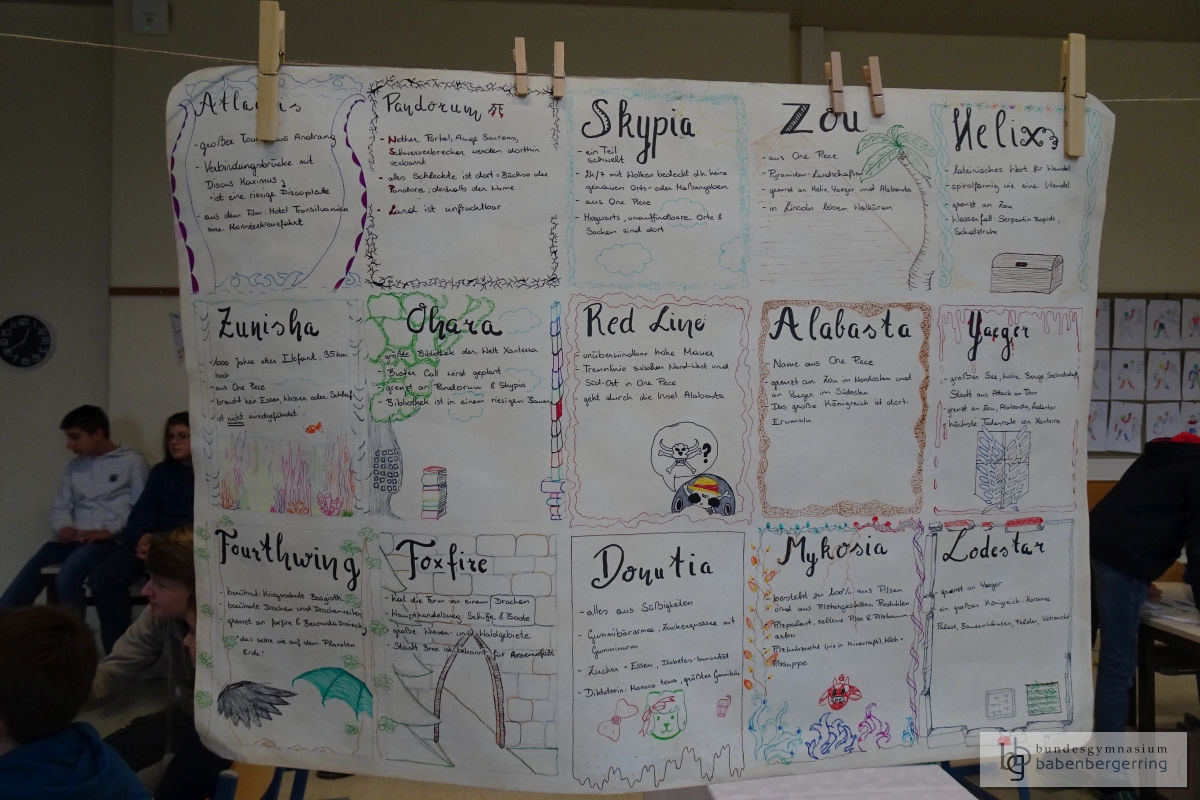 Atlantis
- großer Tourismus Andrang
- Verbindungsbrücke mit
Discus Maximus
• ist eine riesige Discoplatte
- aus dem Film: Hotel Transilvanien
eine Monsterkreuzfahrt
Pandorum 死
- Nether Portal, Auge Saurons,
Schwerverbrecher werden dorthin
verbannt
- alles Schlechte ist dort = Büchse der
Pandora, deshalb der Name
- Land ist unfruchtbar
Skypia
- ein Teil
schwebt
- 24/7 mit Wolken bedeckt dh. keine
genauen Orts- oder Maßangaben
- aus One Piece
- Hogwarts, unauffindbare Orte &
Sachen sind dort
Zou
- aus One Piece
- Pyramiden-Landschaften
- grenzt an Helix, Yaeger und Alabasta
- in Lincoln leben Walküren
Helix
- lateinisches Wort für Wendel
- spiralförmig wie eine Wendel
- grenzt an Zou
- Wasserfall: Serpentin Rapids,
Schatztruhe
Zunisha
- 1000 Jahre alter Elefant, 35km
hoch
- aus One Piece
- braucht kein Essen, Wasser oder Schlaf
- ist nicht
Ohara
- größte Bibliothek der Welt Xanterra
- Buster Call wird geplant
- grenzt an Pandorum & Skypia
- Bibliothek ist in einem riesigen Baum
Red Line
- unüberwindbar hohe Mauer
- Trennlinie zwischen Nord-West und
Süd-Ost in One Piece
- geht durch die Insel Alabasta
?
Alabasta
- Name aus One Piece
- grenzt an Zou im Nordosten und
an Yaeger im Südosten
- Das große Königreich ist dort:
Erumalu
Yaeger
- großer See, hohe Berge,
Stadt aus Attack on Titan
- grenzt an Zou, Alabasta, Lodestar
- höchste Todesrate von Xanterra
Fourthwing
- berühmt: Kriegsschule Basgiath
- berühmte Drachen und Drachenreiter
- grenzt an Foxfire & Bermuda Dreieck
das selbe wie auf dem Planeten
Erde!
Foxfire
- hat die Form von einem Drachen
- Haupthandelsweg: Schiffe & Boote
- große Wiesen- und Waldgebiete
- Stadt Bree ist bekannt für
Donutia
- alles aus Süßigkeiten
- Gummibärarmee, Zuckergussee mit
Gummiwurm
- Zucker = Essen, Diabetes-Immunität
- Diktatorin: Monaca Towa, größter Gummibär
Mykosia
- besteht zu 100% aus Pilzen
und aus Pilzhergestellten Produkten
- Pilzpalast, seltene Pilze &
arten
- Pilzkuhzucht (wie in Minecraft), Milch =
Pilzsuppe
Lodestar
- grenzt an Yaeger
- ein großes Königreich:
Palast, Bauernhäuser, Felder,
bg bundesgymnasium
babenbergerring